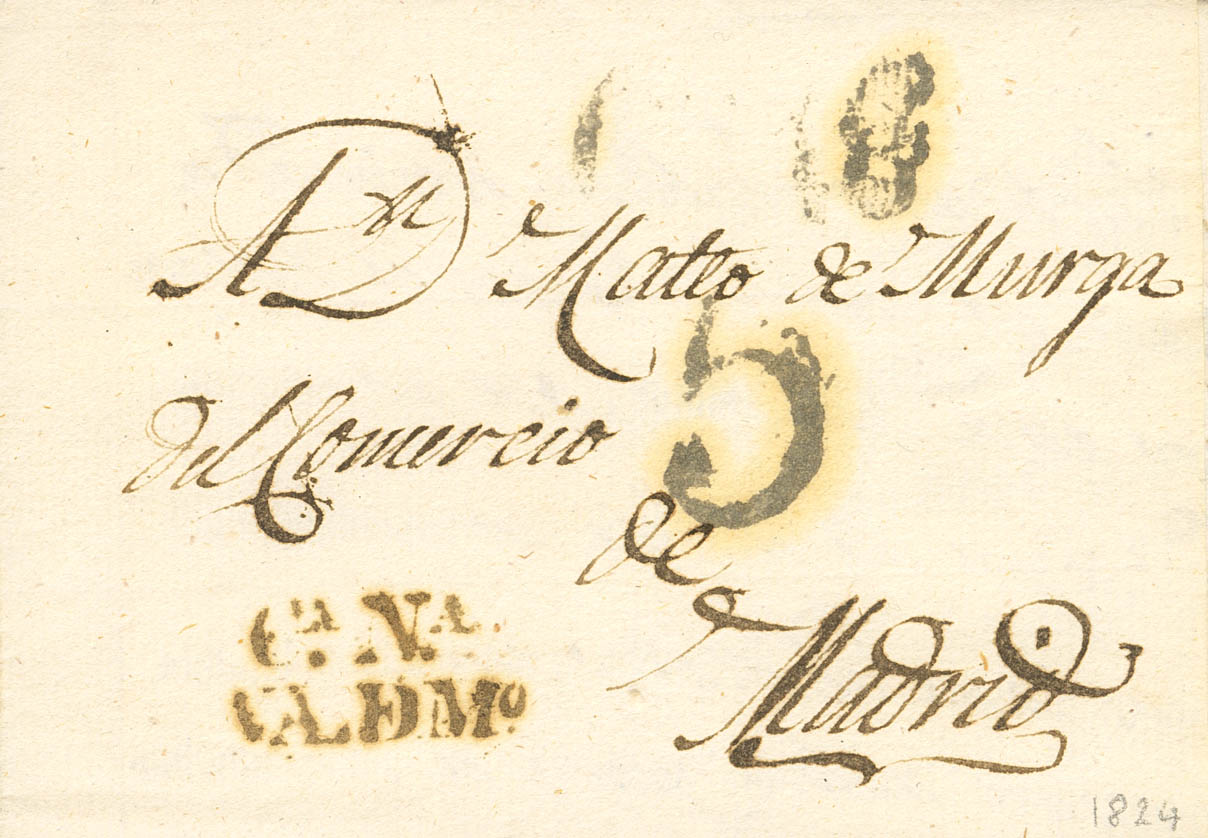 A Dn Mateo de Murga
5
del Comercio
de
Madrid
Ca. Na.
VALDMo
1824